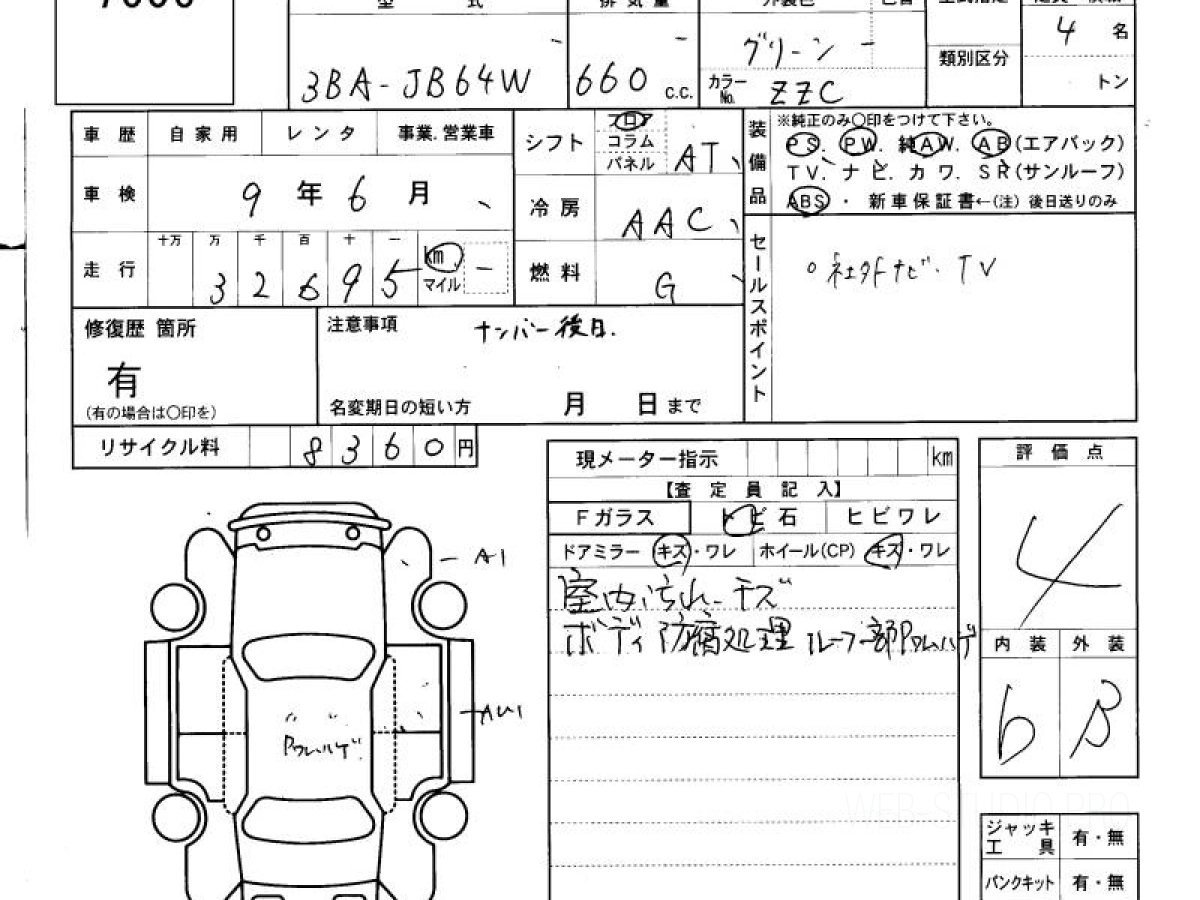 型 式
排 気 量
外装色
色替
3BA-JB64W
660 c.c.
グリーン
カラー No. ZZC
類別区分
4 名
トン
車 歴 自 家 用 レ ン タ 事業.営業車
車 検 9 年 6 月
走 行 十万 万 千 百 十 一
3 2 6 9 5 km
マイル
シフト フロア
コラム
パネル AT
冷 房 AAC
燃 料 G
装備品
※純正のみ〇印をつけて下さい。
PS. PW. 純AW. AB(エアバック)
TV. ナ ビ. カ ワ. SR(サンルーフ)
ABS ・ 新車保証書←(注) 後日送りのみ
セールスポイント
○社外ナビ・TV
修復歴 箇所
有
(有の場合は〇印を)
注意事項 ナンバー後日.
名変期日の短い方 月 日 まで
リサイクル料 8 3 6 0 円
現メーター指示 km
【査 定 員 記 入】
Fガラス トビ石 ヒビワレ
ドアミラー キズ・ワレ ホイール(CP) キズ・ワレ
室内汚れ・キズ
ボディ防腐処理 ルーフ部Pウレハゲ
評 価 点
4
内 装 外 装
b B
A1
AU1
Pウレハゲ
ジャッキ
工 具 有・無
パンクキット 有・無
WEB-STUDIO.PRO